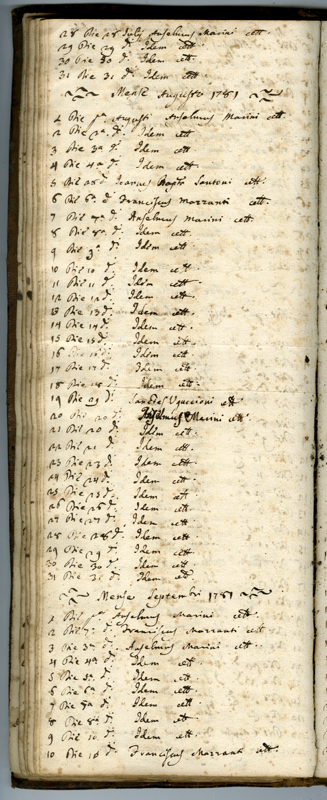 28 Die 28 Julij Anselmus Marini cett.
29 Die 29 d. Idem cett.
30 Die 30 d. Idem cett.
31 Die 31 d. Idem cett.
Mense Augusto 1781
1 Die pa. Augusti Anselmus Marini cett.
2 Die 2a. d. Idem cett
3 Die 3a d. Idem cett
4 Die 4a d. Idem cett.
5 Die d. Joannes Santoni cett.
6 Die 6a. d. Franciscus Mozzanti cett.
7 Die 7a. d. Anselmus Marini cett.
8 Die 8a. d. Idem cett.
9 Die 9a. d. Idem cett
10 Die 10 d. Idem cett.
11 Die 11 d. Idem cett.
12 Die 12 d. Idem cett.
13 Die 13 d. Idem cett.
14 Die 14 d. Idem cett.
15 Die 15 d. Idem cett.
16 Die 16 d. Idem cett.
17 Die 17 d. Idem cett.
18 Die 18 d. Idem cett.
19 Die d. Uguccioni cett
20 Die 20 d. Anselmus Marini cett.
21 Die 20 d. Idem cett.
22 Die 21 d. Idem cett.
23 Die 23 d. Idem cett.
24 Die 24 d. Idem cett.
25 Die 25 d. Idem cett
26 Die 26 d. Idem cett.
27 Die 27 d. Idem cett
28 Die 28 d. Idem cett.
29 Die 29 d. Idem cett.
30 Die 30 d. Idem cett.
31 Die 31 d. Idem cett
Mense Septembri 1781
1 Die pa. d. Anselmus Marini cett.
2 Die d. Franciscus Mozzanti cett
3 Die 3a. d. Anselmus Marini cett.
4 Die 4a d. Idem cett.
5 Die 5a. d. Idem cett.
6 Die 6a d. Idem cett.
7 Die d. Idem cett.
8 Die 8a d. Idem cett.
9 Die d. Idem cett.
10 Die 10 d. Franciscus Mozzanti cett.